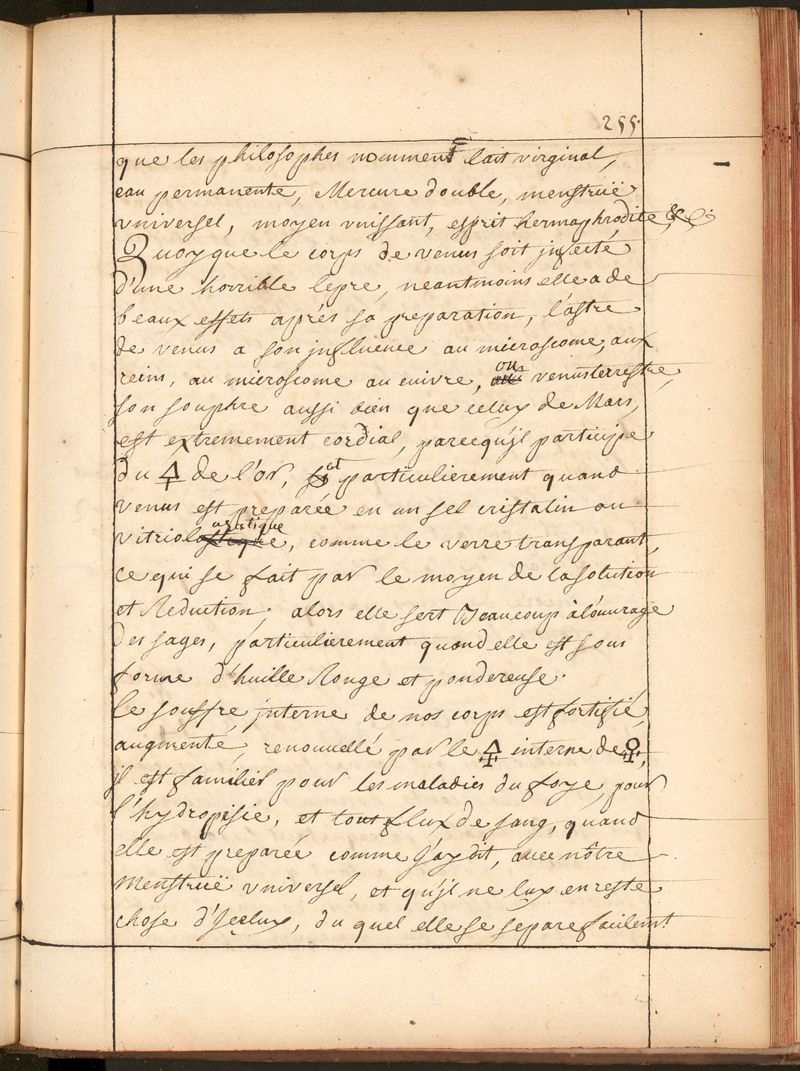 255.
que les philosophes nomment lait virginal,
eau permanente, Mercure double, menstruë
vniversel, moyen vnissant, esprit hermaphrodite, &c.
Quoyque le corps de venus soit jnfecté
d'une horrible lepre, neantmoins elle a de
beaux effets aprés sa preparation, l'astre
de venus a son jnfluence au microscome, aux
reins, au microscome au cuivre, ou venus terrestre,
son souphre aussi bien que celuy de Mars,
est extremement cordial, parcequ'jl participe
du 🜍 de l'or, et particulierement quand
venus est preparée en un sel cristalin ou
vitriol azotique, comme le verre transparant,
ce qui se fait par le moyen de la solution
et Reduction. alors elle sert Beaucoup à l'ouvrage
des sages, particulierement quand elle est sous
forme d'huille Rouge et pondereuse.
le souffre jnterne de nos corps est fortifié,
augmenté, renouvellé par le 🜍 interne de ♀,
jl est familier pour les maladies du foye, pour
l'hydropisie, et tout flux de sang, quand
elle est preparée comme j'ay dit, avec nôtre
Menstruë vniversel, et qu'jl ne luy en reste
chose d'Jceluy, du quel elle se separe facilemt